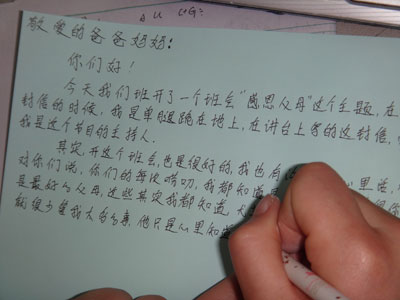 敬爱的爸爸妈妈:
你们好!
今天我们班开了一个班会"感恩父母"这个主题,在
封信的时候,我是单腿跪在地上,在讲台上写的这封信,
我是这个节目的主持人.
其实,开这个班会,也是很好的,我也有 里说
对你们说,你们的每次唠叨,我都知道是 但
是最好的父母,这些其实我都知道,
就很少 里我 他只是心里知道